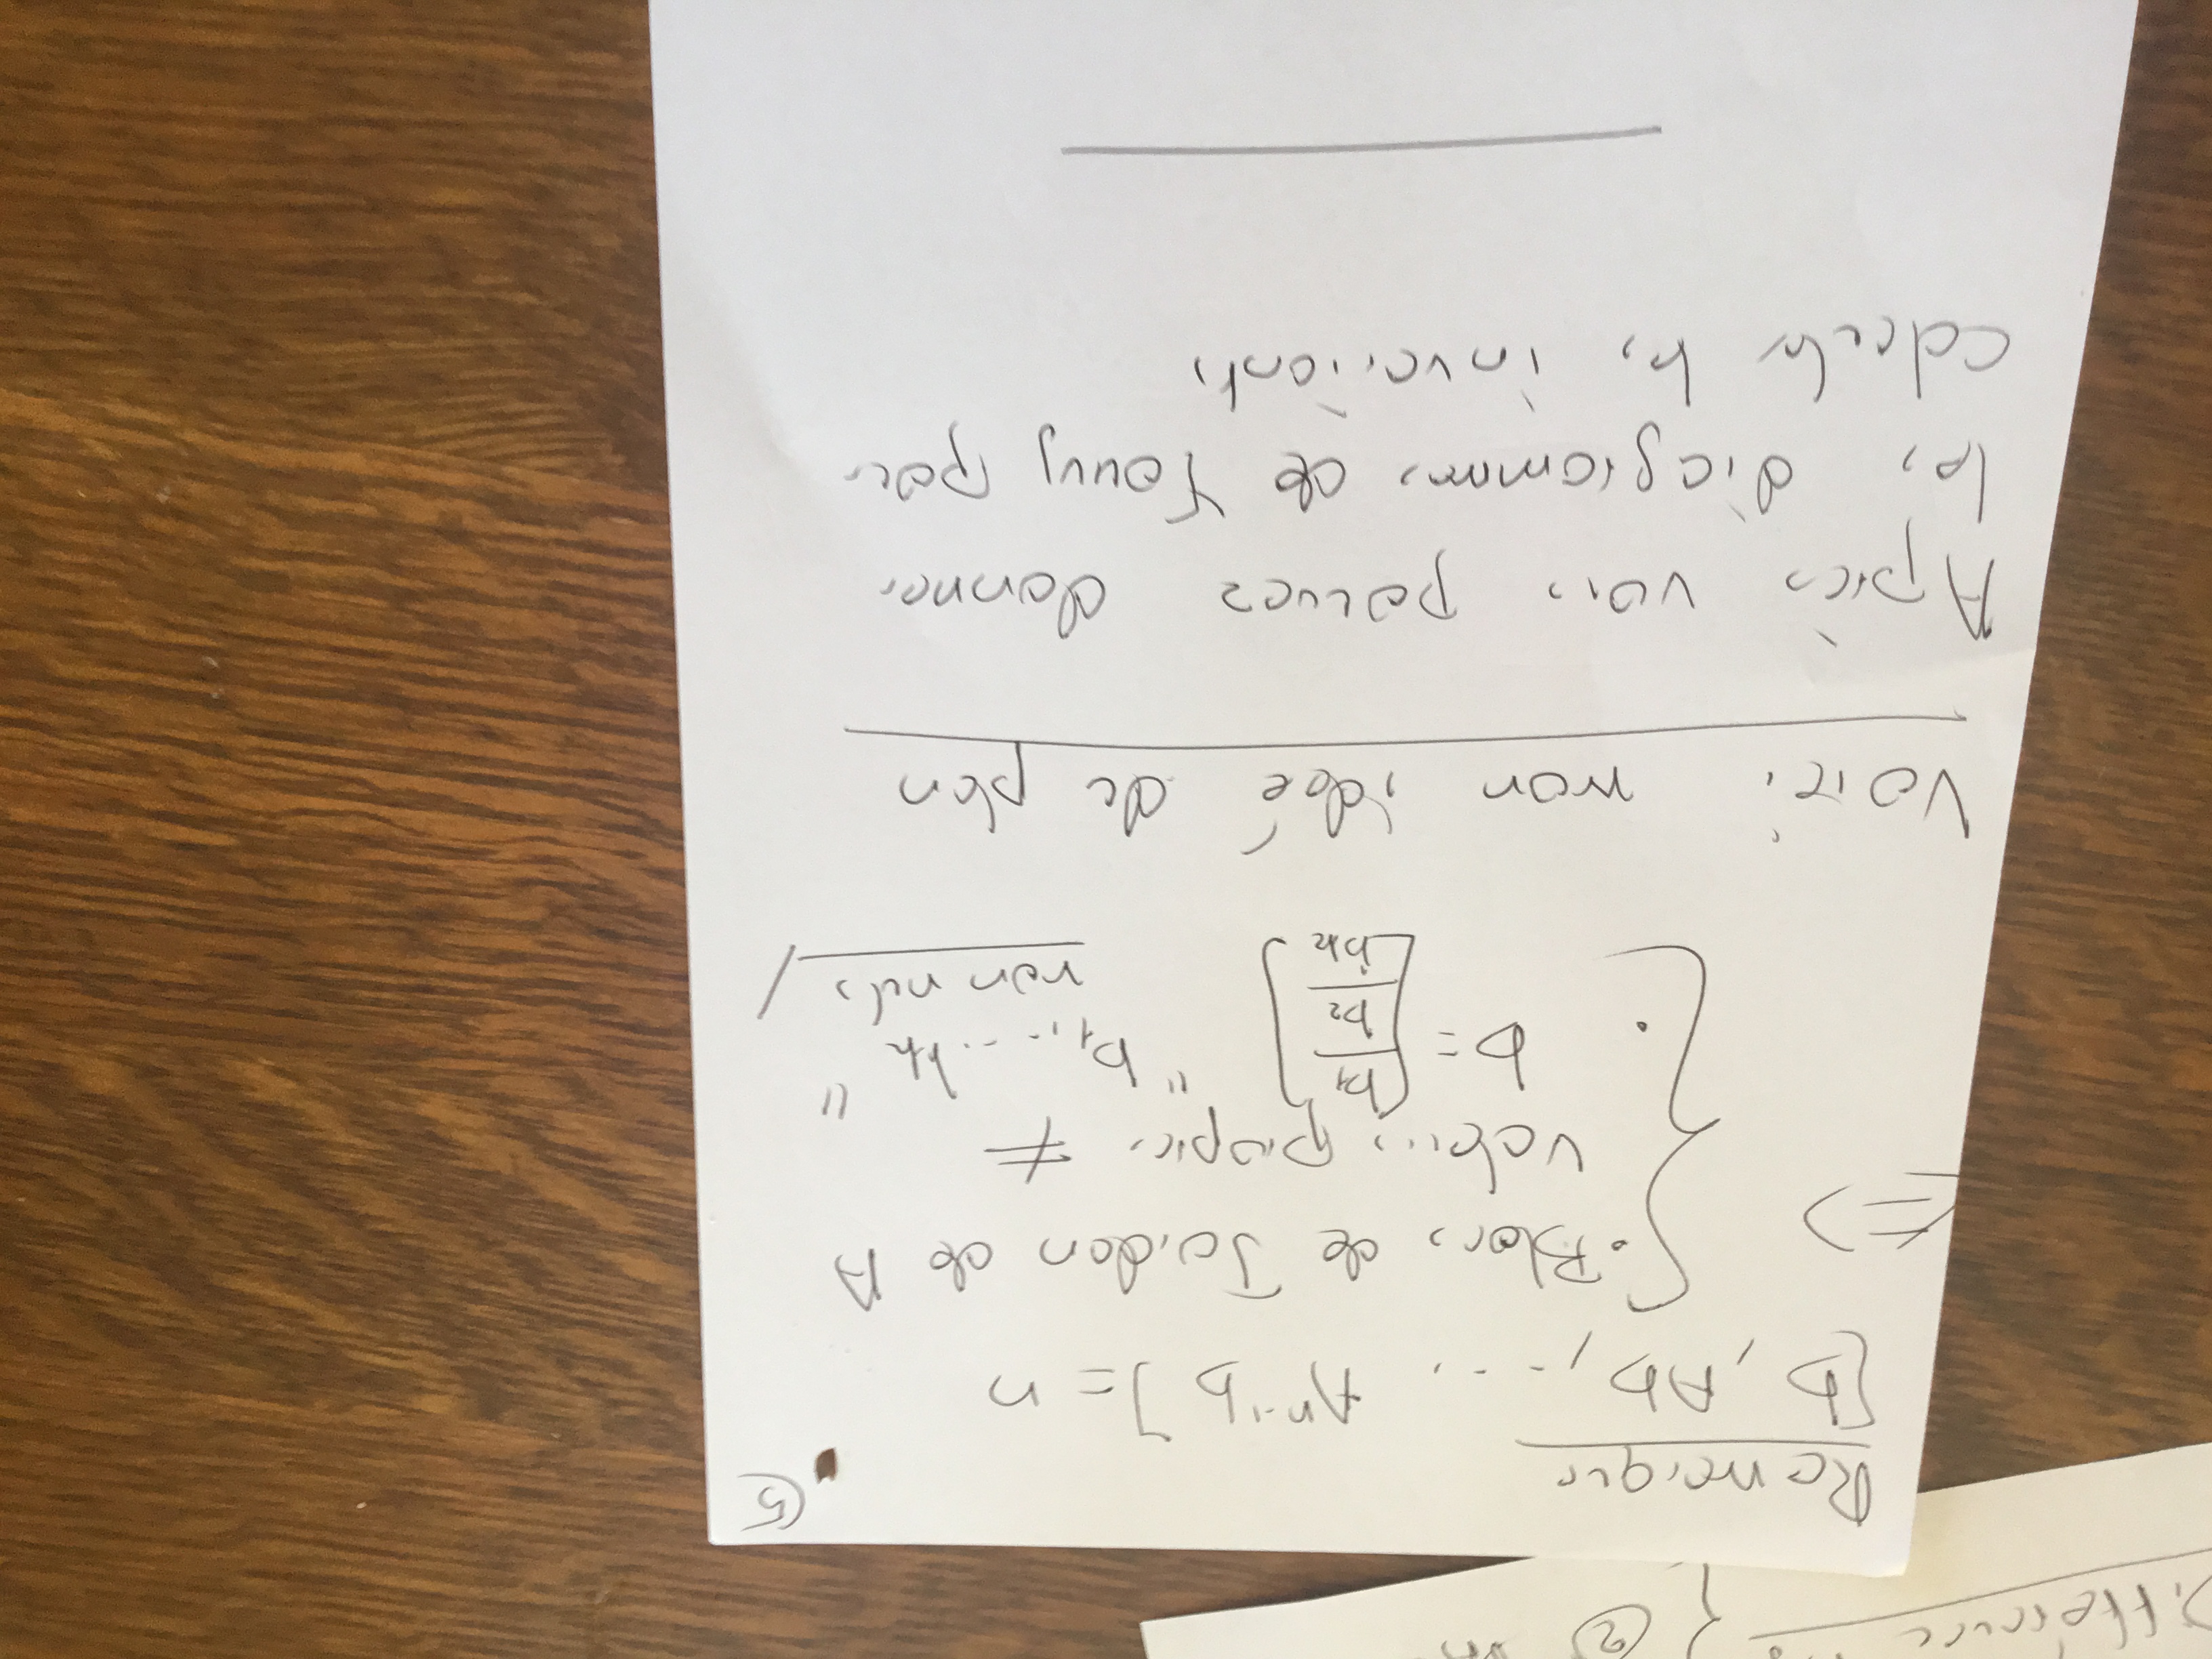 Différence
{ ②
⑤
Remarque
[b, Ab, ... Aⁿ⁻¹b] = n
⇔ { . Blocs de Jordan de A
valeurs propres ≠
. b = [b₁ / b₂ / bₖ] "b₁, ... bₖ"
non nuls /
Voici mon ideé de plan
Après vous pouvez donner
les diagrammes de Young pour
calculer les invariants